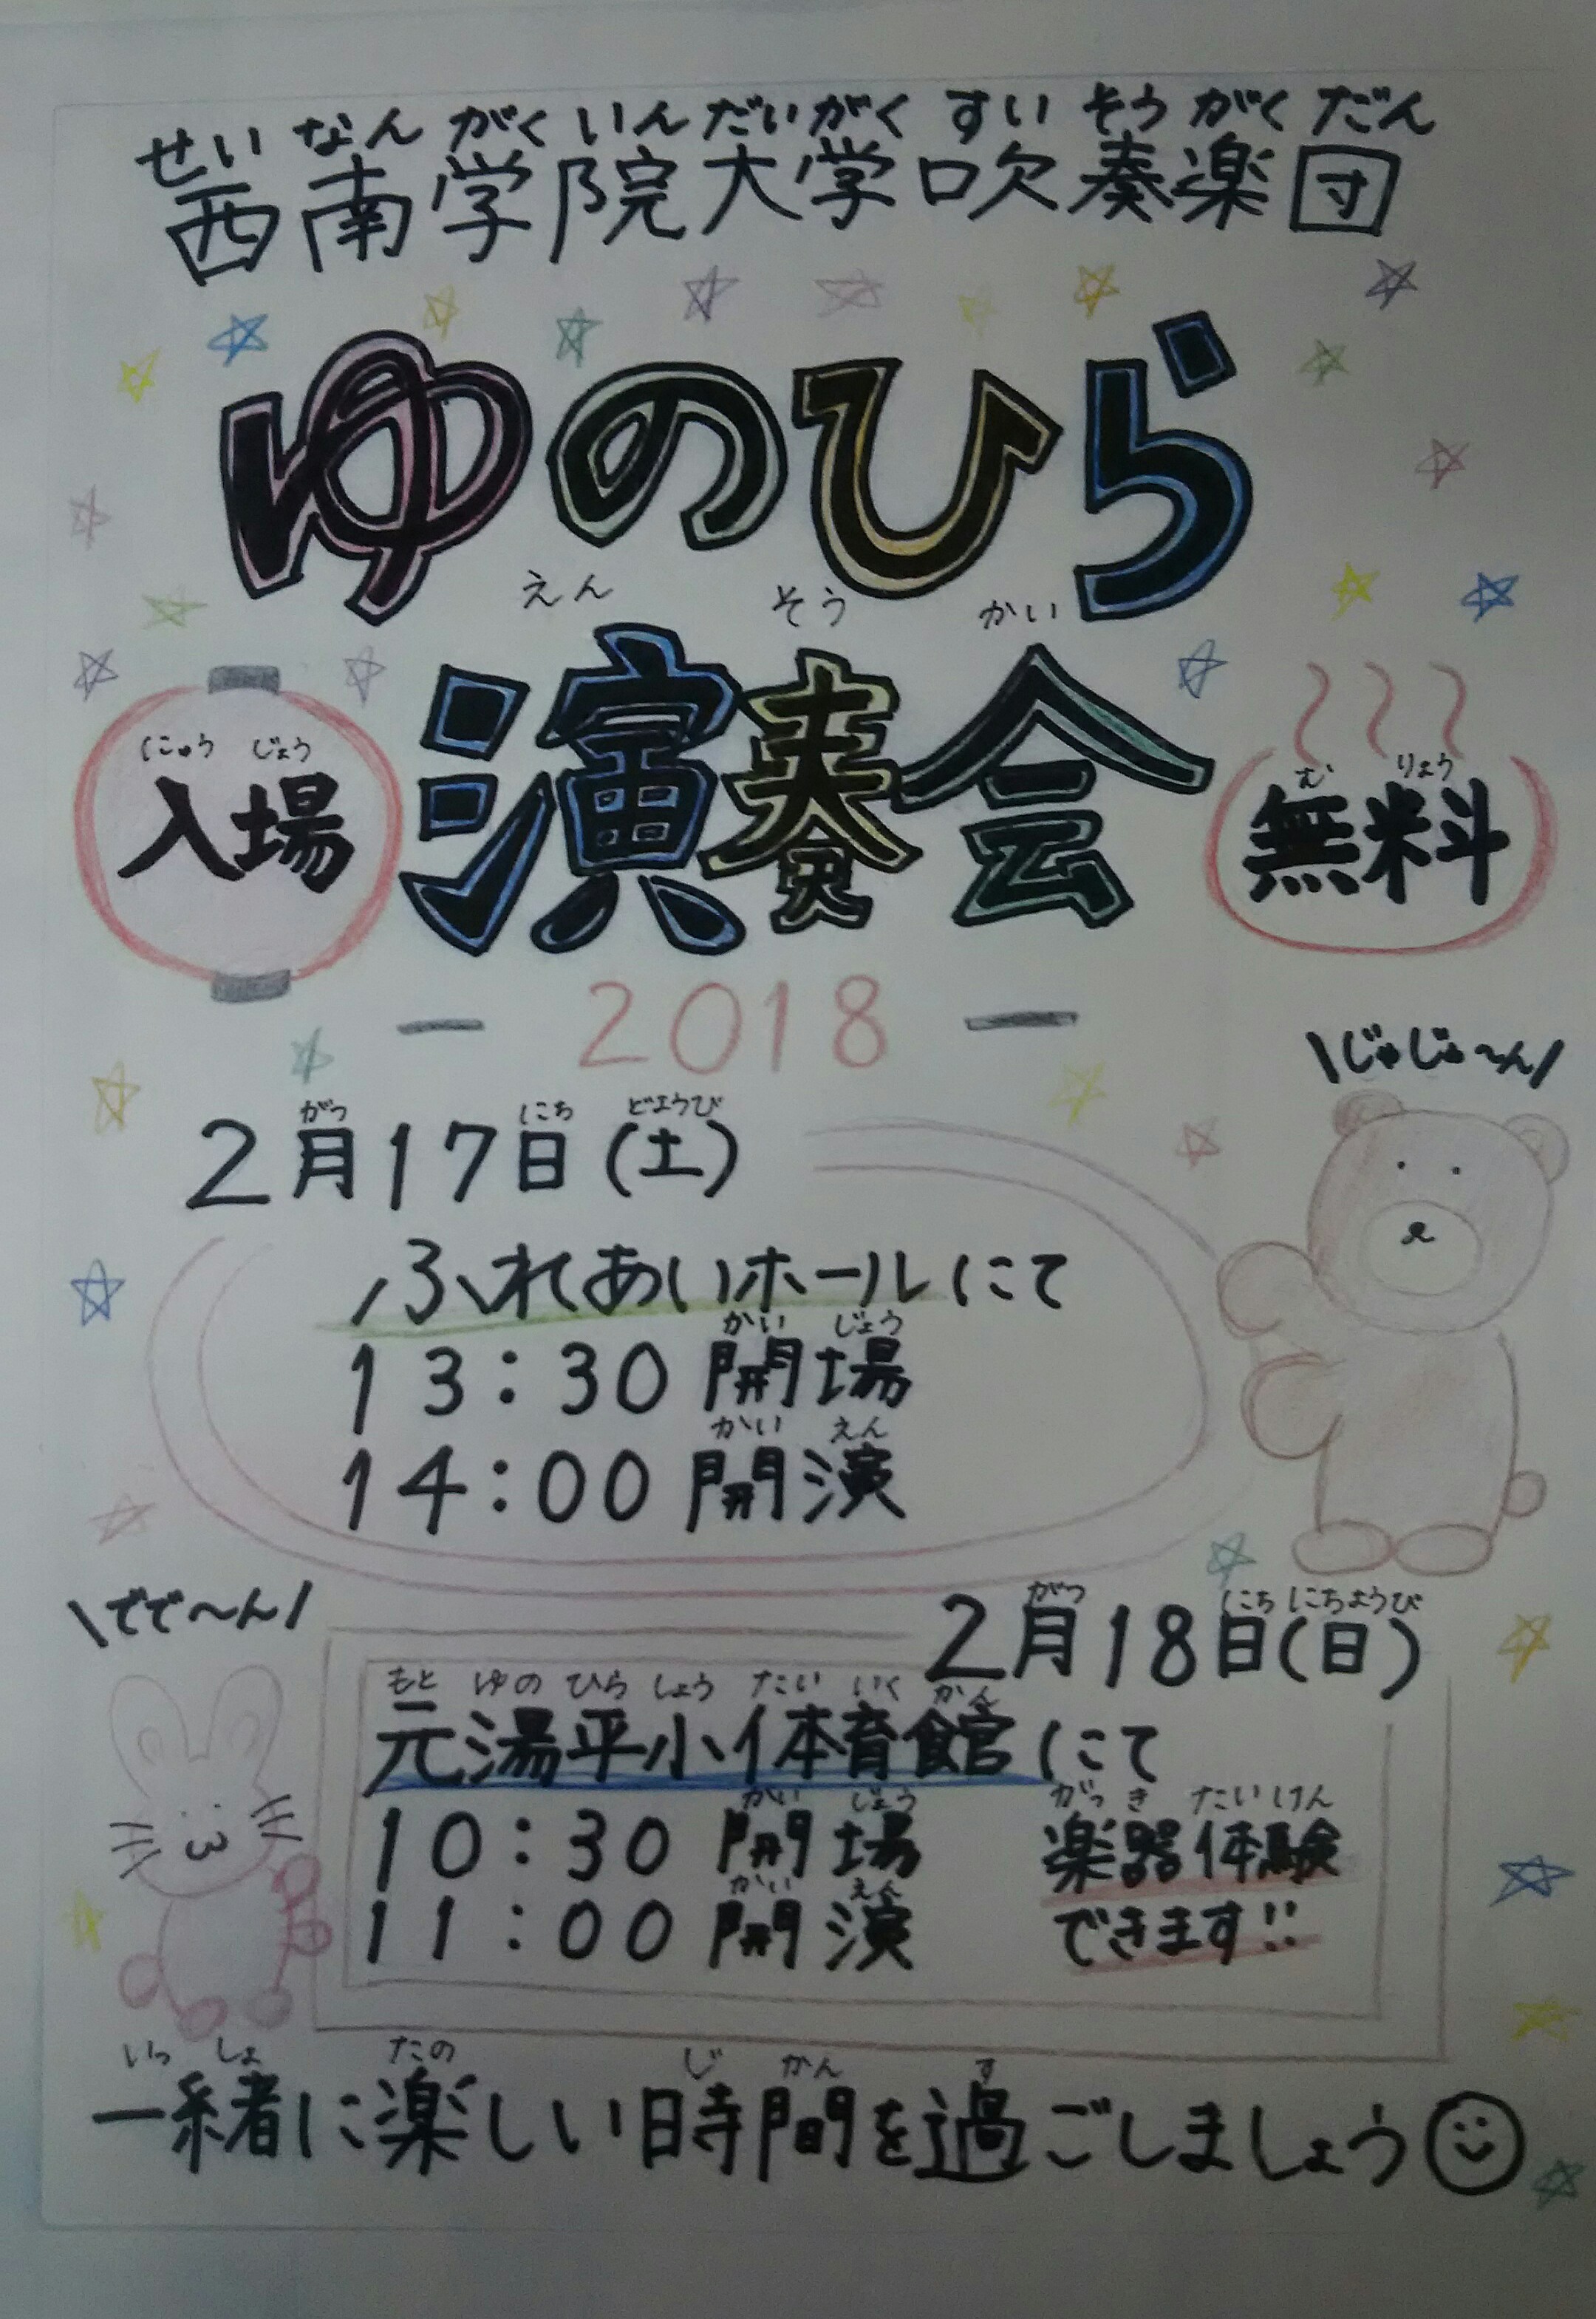 せいなんがくいんだいがくすいそうがくだん
西南学院大学吹奏楽団
ゆのひら
えんそうかい
演奏会
にゅうじょう
入場
むりょう
無料
2018
\じゅじゅ〜ん/
がつ にち どようび
2月17日(土)
ふれあいホールにて
かいじょう
13:30 開場
かいえん
14:00 開演
\でで〜ん/
がつ にち にちようび
2月18日(日)
もとゆのひらしょうたいいくかん
元湯平小体育館にて
かいじょう
10:30 開場
かいえん
11:00 開演
がっきたいけん
楽器体験
できます!!
いっしょ たの じかん す
一緒に楽しい時間を過ごしましょう